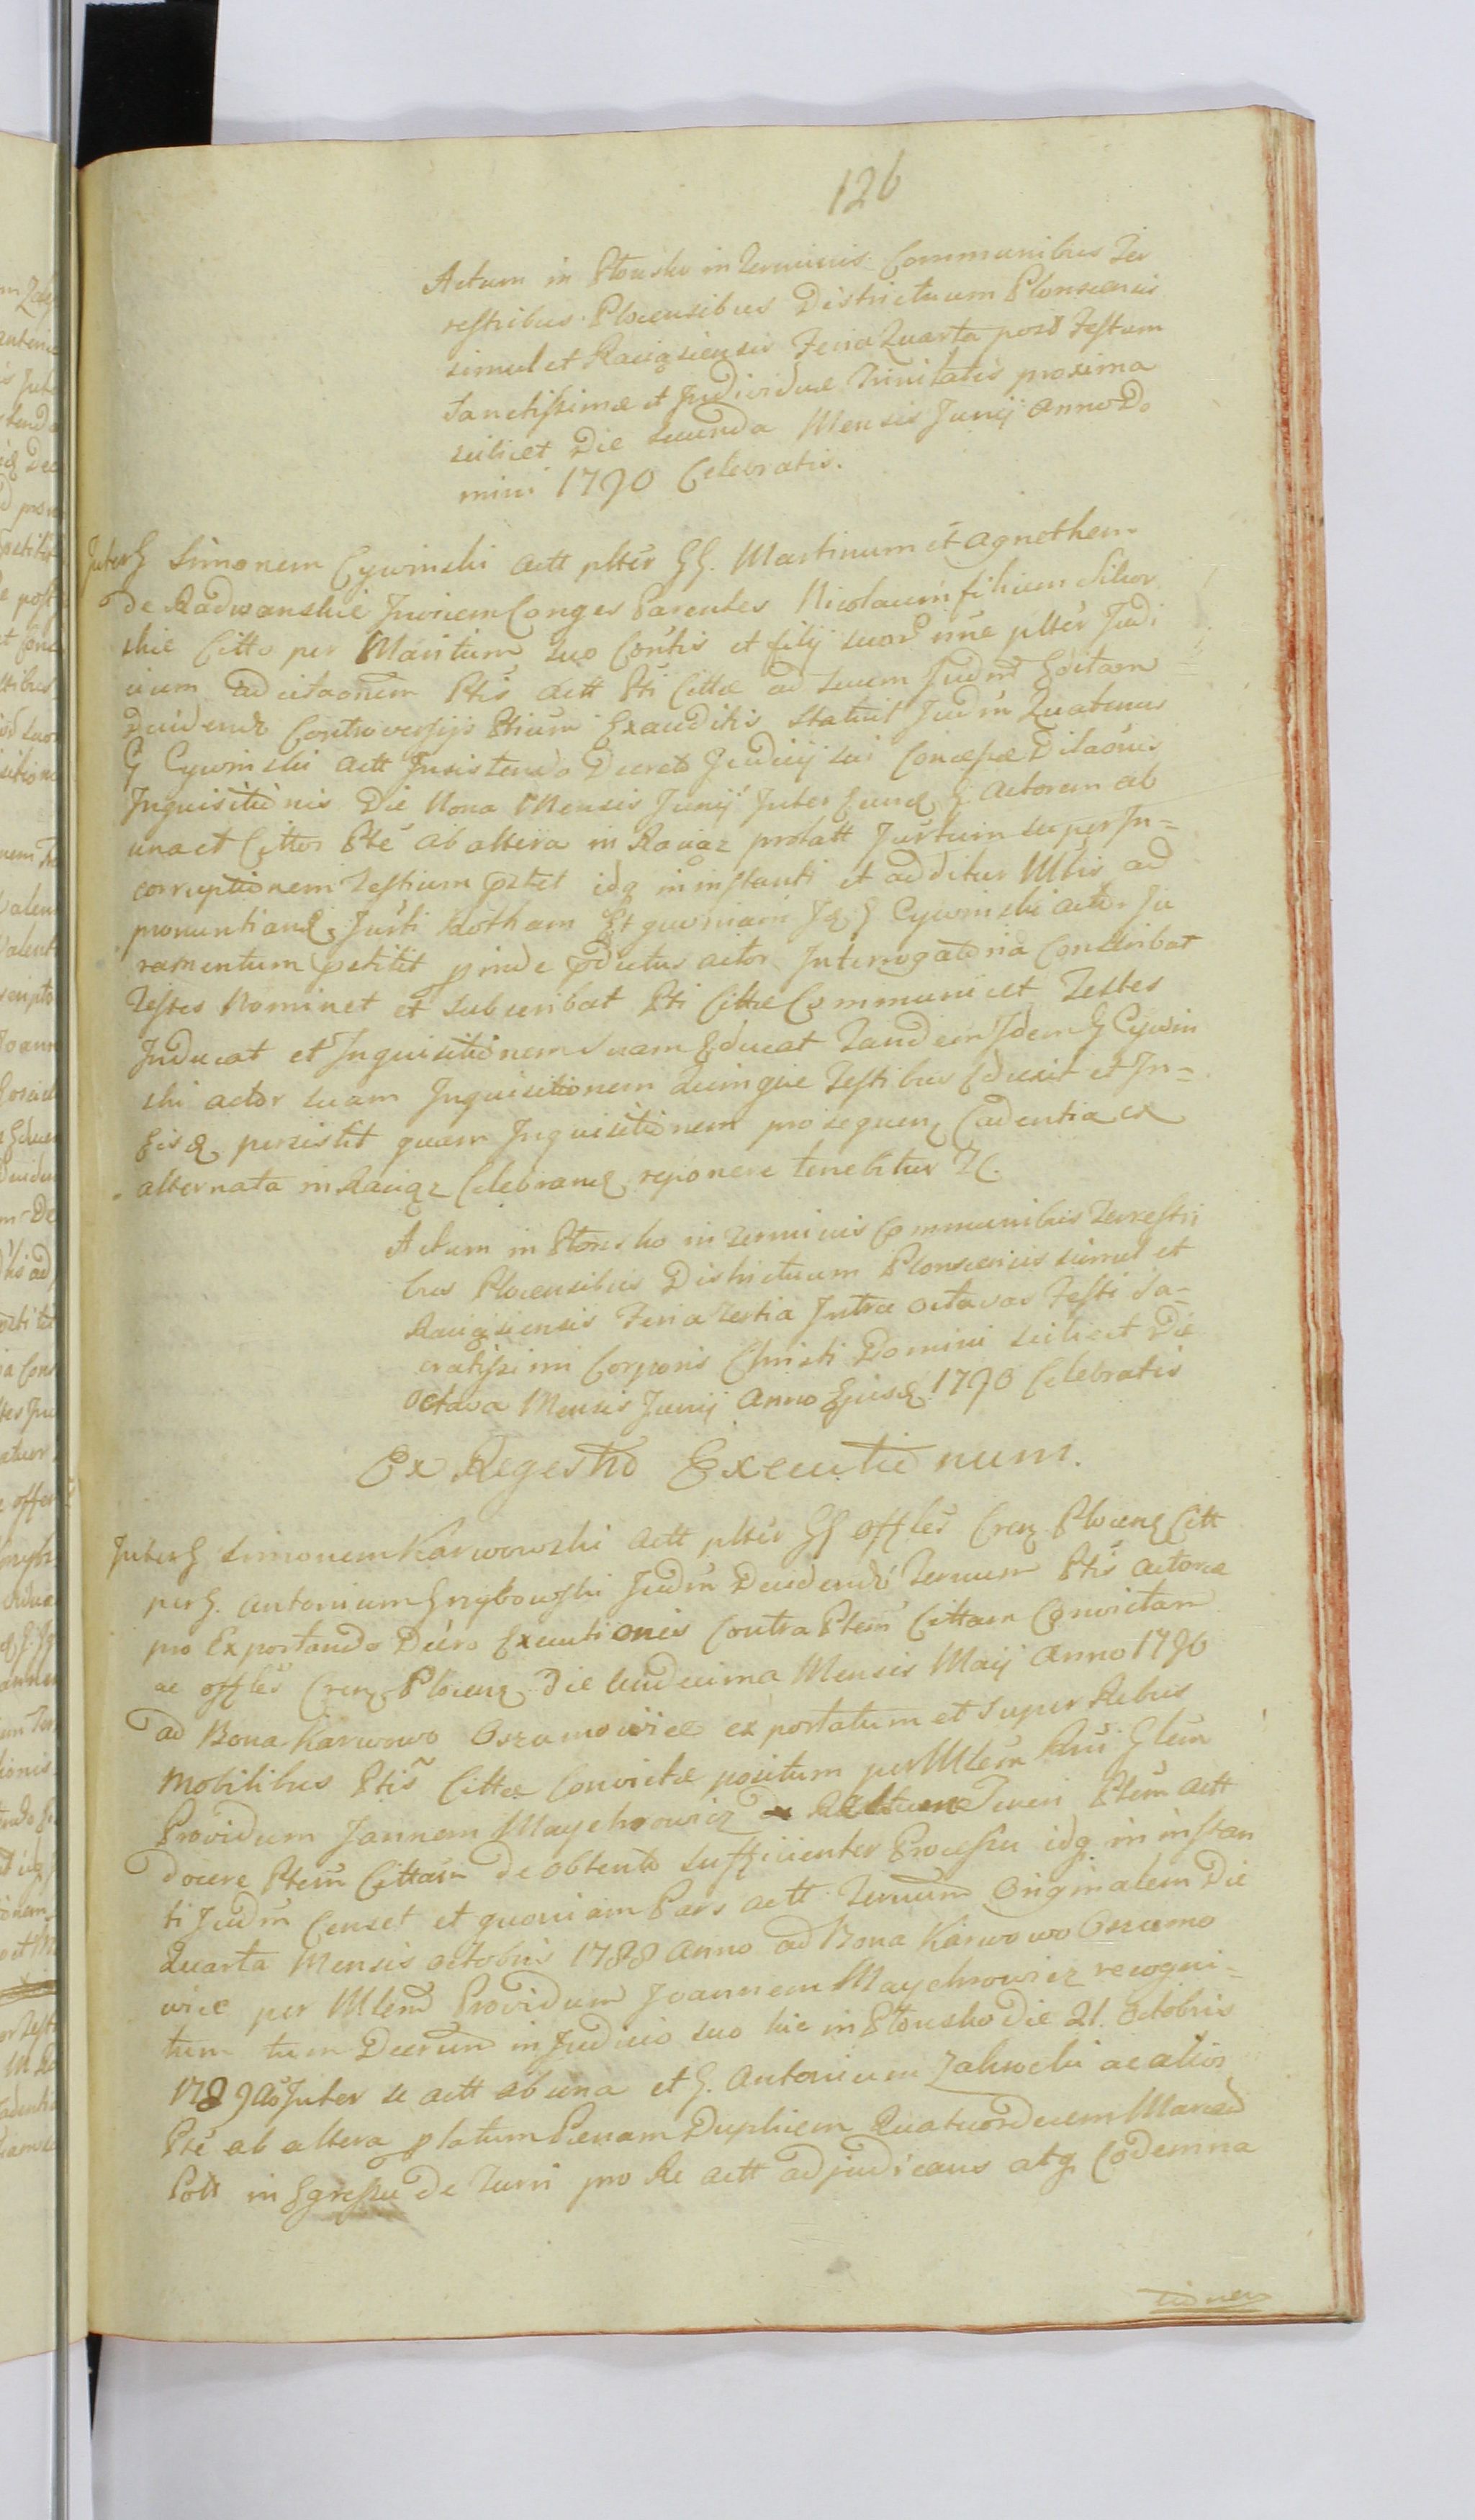 126
Actum in Płonsko in Terminis Communibus Ter
restribus Plocensibus Districtuum Plonscensis
simul et Raciąsiensis Feria Quarta post Festum
Sanctissimæ et Individuæ Trinitatis proxima
scilicet Die Secunda Mensis Junij Anno Do
mini 1790 Celebratis.
Inter G Simonem Cywinski Actt plter GG. Martinum et Agnethem
de Radwanskie Juvicem Conges Parentes Nicolaum filium Sikor
skie Citto per Maritum suo Contis et filij suor nne plter Judi
cium ad citaonem Ptis Actt Pti Cittæ ad suum Judm
Decidend Controversijs Ptium Exauditis Statuit Judm Quatenus
G Cywinski Actt Insistendo Decreto Judicij sui Concessæ Dilaonis
Inquisitionis Die Nona Mensis Junij Inter Eund G Actorem ab
una et Cittos Pte ab altera in Raciąz prolatt Jurtum super In=
corruptionem Testium idq in instanti et additur Mtris ad
pronuntiand Jurti Rotham Et quoniam G Cywinski Actor Ju
ramentum Actor Interrogatoria Conscribat
Testes Nominet et subscribat Pti Cittæ Communicet Testes
Inducat et Inquisitionem suam Educat Tandem Idem G Cywin
ski Actor suam Inquisitionem quinque Testibus Eduxit et In=
Eisd persistit quam Inquisitionem pro sequen Cadentia ex
alternata in Raciąz Celebrand reponere tenebitur
Actum in Płonsko in Terminis Communibus Terrestri
bus Plocensibus Districtuum Plonscensis simul et
Raciąsiensis Feria Tertia Intra Octavas Festi Sa=
cratissimi Corporis Christi Domini scilicet Die
Octava Mensis Junij Anno Ejusd 1790 Celebratis
Ex Regestro Executionum.
Inter G Simonem Karwowski Actt plter GG Offles Cren Plocen Citt
per G. Antonium Grzybowski Judm Decidendo Ternum Ptis Actoræ
pro Exportando Decro Executionis Contra Ptem Cittam Convictam
ac offles Cren Plocen Die Undecima Mensis Maij Anno 1790
ad Bona Karwowo Orszymowice exportatum et super Rebus
Mobilibus Ptis Cittæ Convictæ positum per Mlem Rni Glem
Providum Joannem Maychrowicz Teneri Ptem Actt
docere Ptem Cittam de obtento sufficienter Processu idq in instan
ti Judm Censet et quoniam Pars Actt Ternum Originalem Die
Quarta Mensis Octobris 1788 Anno ad Bona Karwowo Orszymo
wice per Mlem Providum Joannem Maychrowicz recogni=
tum tum Decrum in Judicio suo hic in Płonsko Die 21. Octobris
1789 Ao Inter se Actt ab una et G. Antonium Zakrocki ac alios
Pte ab altera platum Pœnam Duplicem Quatuordecem Marcar
Poll in Egressu de Turri pro Re Actt adjudicans atq Codemna
tionem